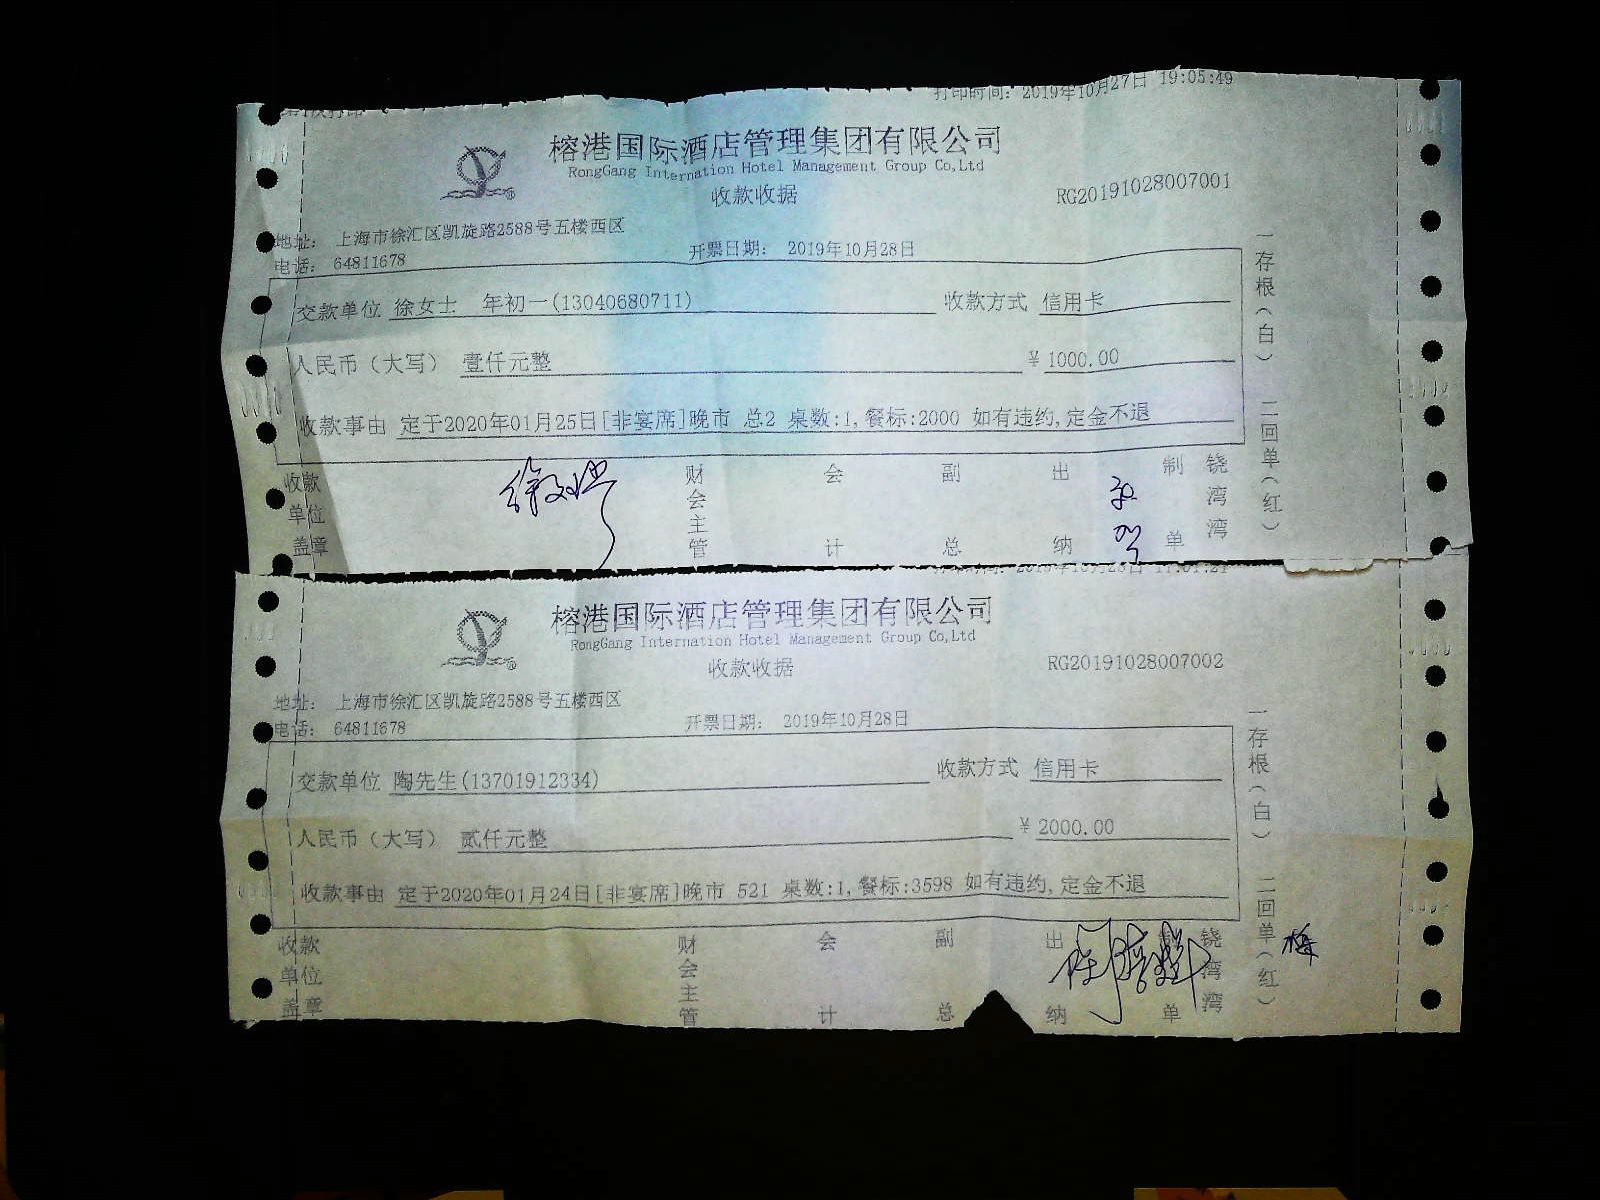 打印时间: 2019年10月27日 19:05:49
榕港国际酒店管理集团有限公司
RongGang Internation Hotel Management Group Co,Ltd
收款收据
RG20191028007001
地址: 上海市徐汇区凯旋路2588号五楼西区
电话: 64811678
开票日期: 2019年10月28日
交款单位 徐女士 年初一(13040680711) 收款方式 信用卡
人民币(大写) 壹仟元整 ¥ 1000.00
收款事由 定于2020年01月25日[非宴席]晚市 总2 桌数:1,餐标:2000 如有违约,定金不退
一存根(白) 二回单(红)
收款单位盖章 财会主管 会计 副总 出纳 制单 铙湾湾
榕港国际酒店管理集团有限公司
RongGang Internation Hotel Management Group Co,Ltd
收款收据
RG20191028007002
地址: 上海市徐汇区凯旋路2588号五楼西区
电话: 64811678
开票日期: 2019年10月28日
交款单位 陶先生(13701912334) 收款方式 信用卡
人民币(大写) 贰仟元整 ¥ 2000.00
收款事由 定于2020年01月24日[非宴席]晚市 521 桌数:1,餐标:3598 如有违约,定金不退
一存根(白) 二回单(红)
收款单位盖章 财会主管 会计 副总 出纳 制单 铙湾湾